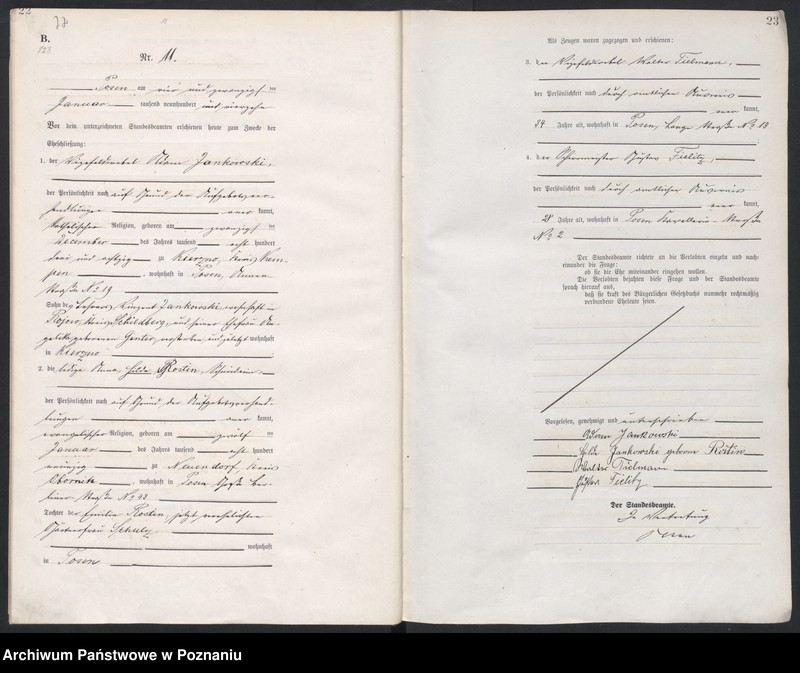 22
77
11
B.
128
Nr. 11.
Posen am vier und zwanzigsten
Januar tausend neunhundert und vierzehn
Vor dem unterzeichneten Standesbeamten erschienen heute zum Zwecke der
Eheschließung:
1. der Vizefeldwebel Adam Jankowski,
der Persönlichkeit nach auf Grund der Aufgebotsver-
handlungen kannt,
katholischer Religion, geboren am zwanzigsten
Dezember des Jahres tausend acht hundert
drei und achtzig zu Kierzno, Kreis Kem-
pen, wohnhaft in Posen,
Straße No 19
Sohn des Lehrers Vinzent Jankowski, wohnhaft in
Rojow, Kreis Schildberg, und seiner Ehefrau An-
gelika geborenen Genter, verstorben und zuletzt wohnhaft
in Kierzno
2. die ledige Anna, Hilda Rostin, Schneiderin,
der Persönlichkeit nach auf Grund der Aufgebotsverhand-
lungen kannt,
evangelischer Religion, geboren am zwölften
Januar des Jahres tausend acht hundert
neunzig zu Neuendorf, Kreis
Obornik, wohnhaft in Posen Große Ber-
liner Straße No 43
Tochter der Emilie Rostin, jetzt verehelichten
Gärtnerfrau Schulz
wohnhaft
in Posen
23
Als Zeugen waren zugezogen und erschienen:
3. der Vizefeldwebel Walter Tielmann,
der Persönlichkeit nach durch amtlichen Ausweis
kannt,
34 Jahre alt, wohnhaft in Posen, Lange Straße No 13
4. der Schirrmeister Gustav Fielitz,
der Persönlichkeit nach durch amtlichen Ausweis
kannt,
28 Jahre alt, wohnhaft in Posen Kavallerie-Straße
No 2
Der Standesbeamte richtete an die Verlobten einzeln und nach-
einander die Frage:
ob sie die Ehe miteinander eingehen wollen.
Die Verlobten bejahten diese Frage und der Standesbeamte
sprach hierauf aus,
daß sie kraft des Bürgerlichen Gesetzbuchs nunmehr rechtmäßig
verbundene Eheleute seien.
Vorgelesen, genehmigt und unterschrieben
Adam Jankowski
Hilda Jankowski geborene Rostin
Walter Tielmann
Gustav Fielitz
Der Standesbeamte.
In Vertretung
Archiwum Państwowe w Poznaniu